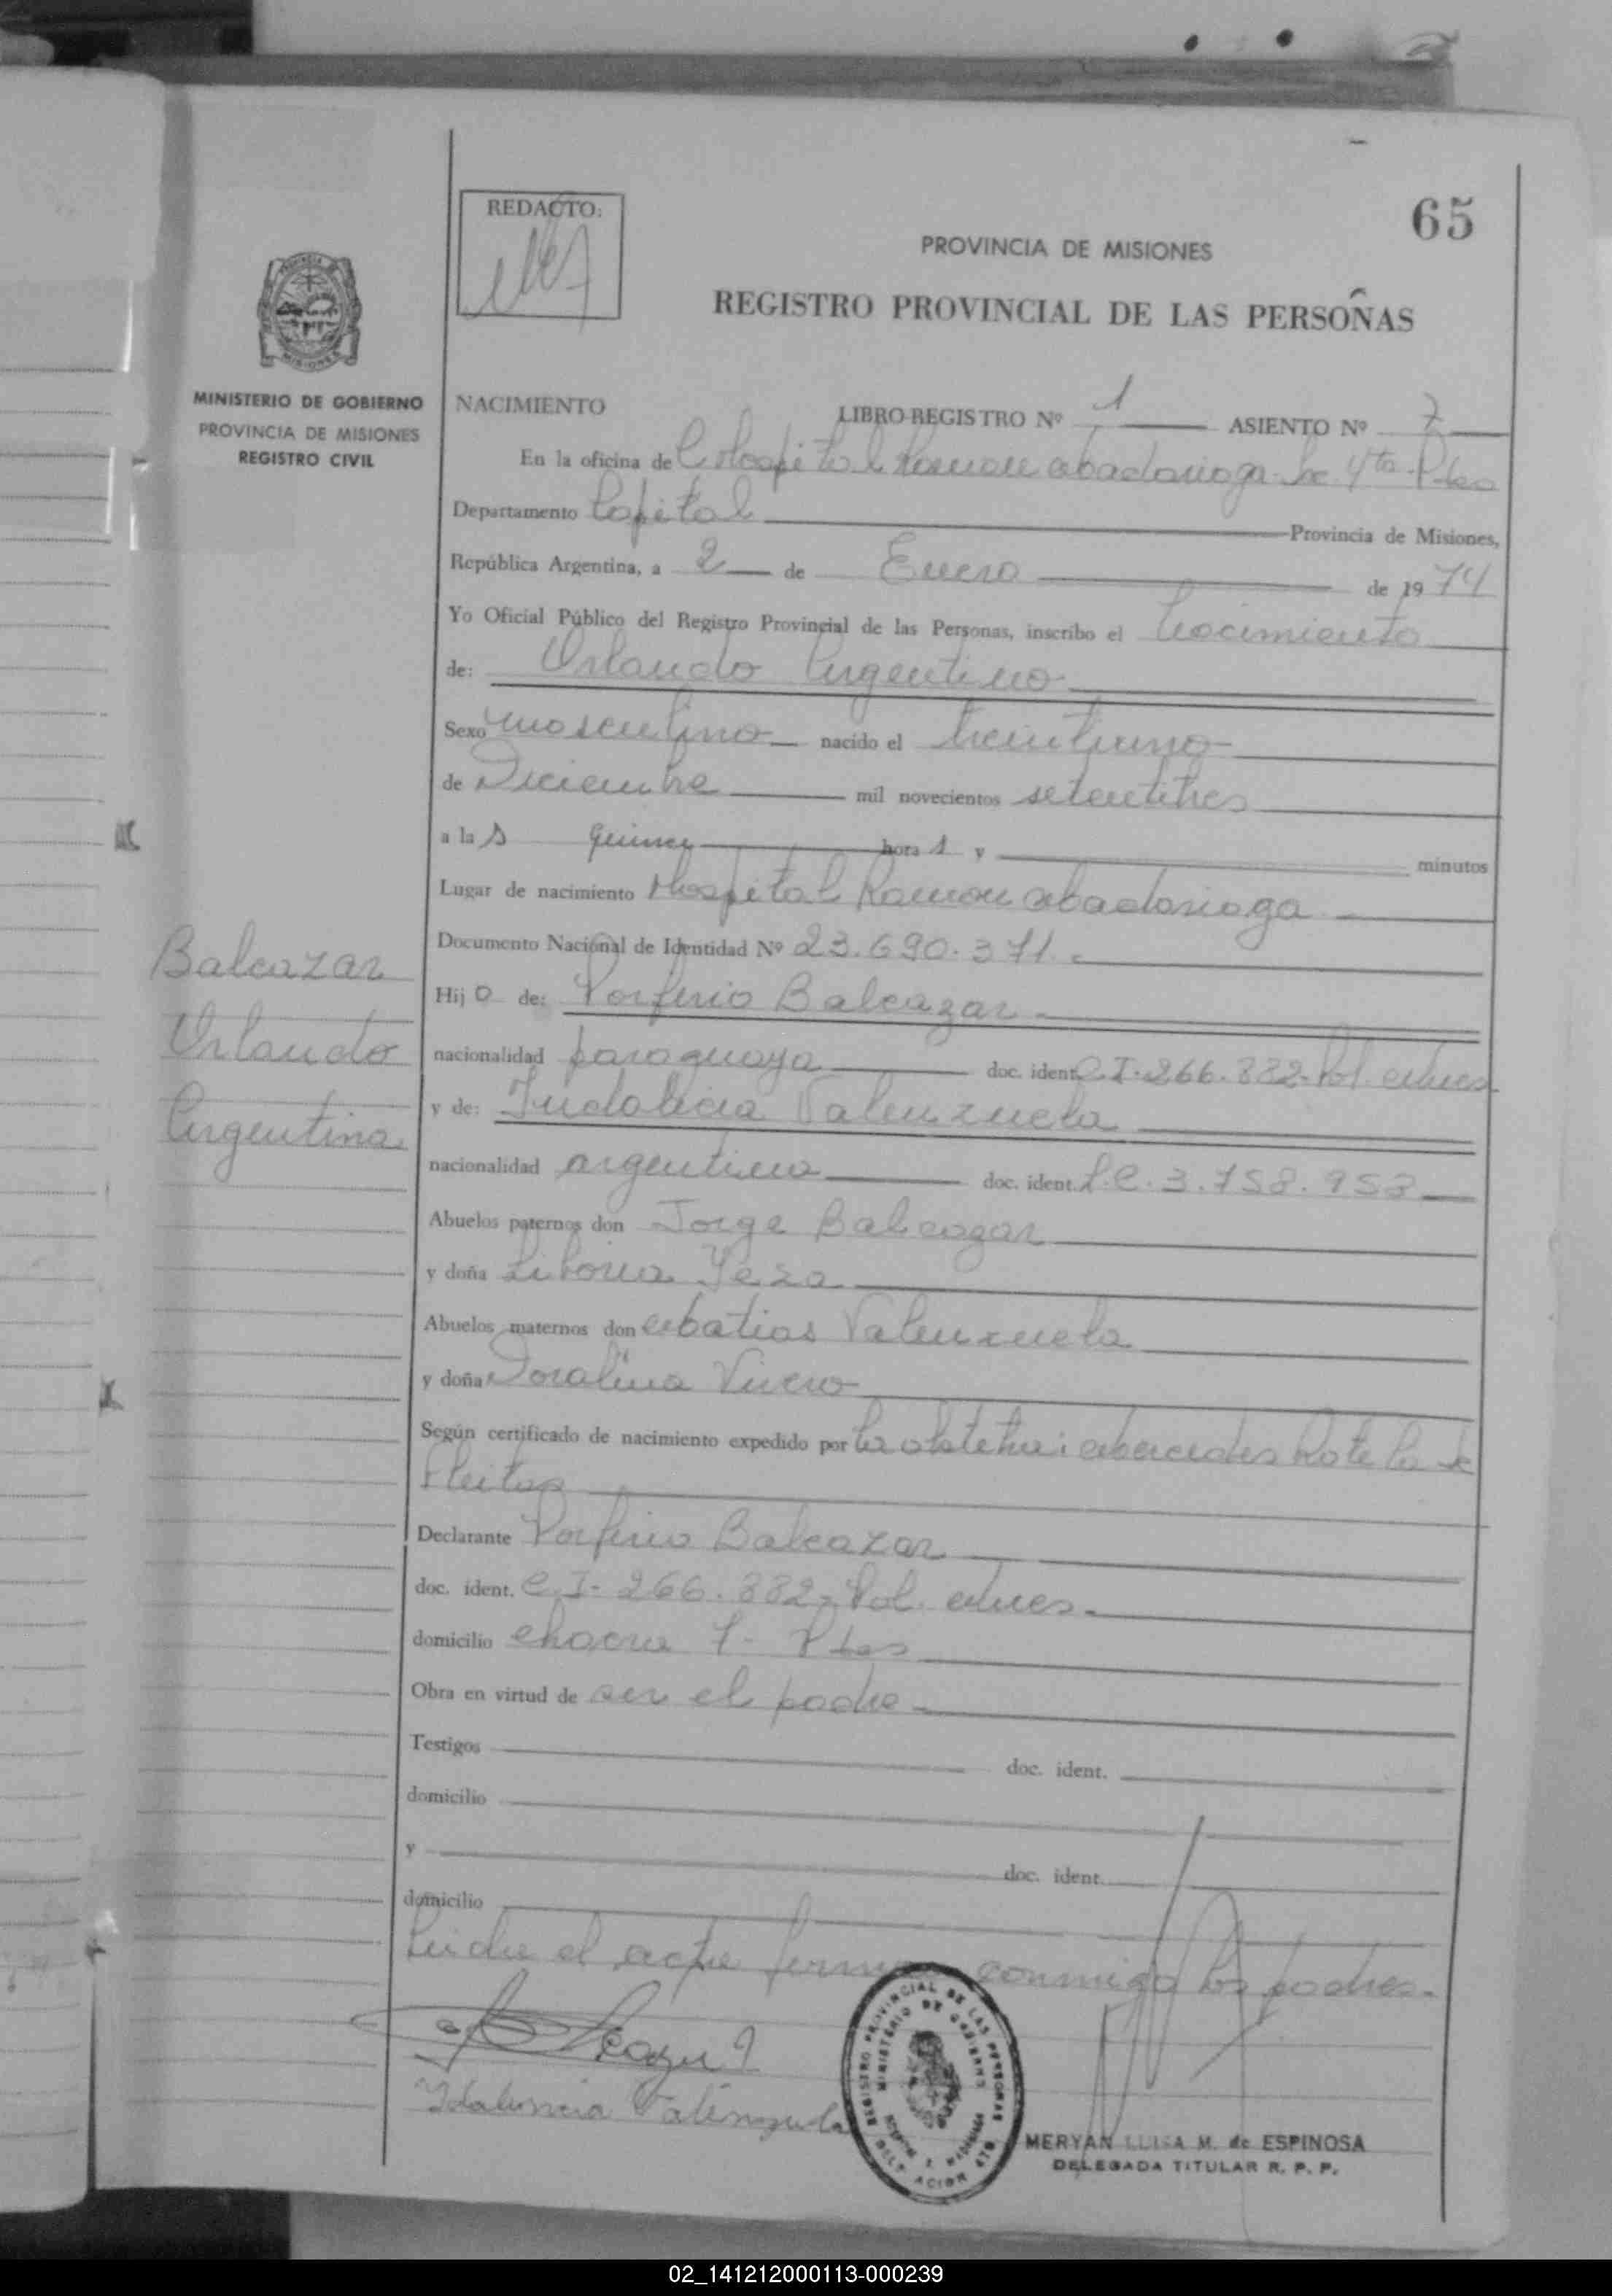 65
REDACTO:
PROVINCIA DE MISIONES
REGISTRO PROVINCIAL DE LAS PERSONAS
MINISTERIO DE GOBIERNO
PROVINCIA DE MISIONES
REGISTRO CIVIL
NACIMIENTO LIBRO-REGISTRO Nº 1 ASIENTO Nº 7
En la oficina de Hospital Ramon abadariaga 4ta
Departamento Capital Provincia de Misiones,
República Argentina, a 2 de Enero de 1974
Yo Oficial Público del Registro Provincial de las Personas, inscribo el Nacimiento
de: Orlando Argentino
Sexo masculino nacido el treintiuno
de Diciembre mil novecientos setentitres
a las quince horas y minutos
Lugar de nacimiento Hospital Ramon abadariaga
Documento Nacional de Identidad Nº 23.690.371.
Balcazar
Orlando
Argentino
Hijo de: Porferio Balcazar
nacionalidad paraguaya doc. ident. C.I. 266.882 Pol.
y de: Indalicia Valenzuela
nacionalidad argentina doc. ident. L.C. 3.758.953
Abuelos paternos don Jorge Balcazar
y doña Liboria
Abuelos maternos don Valenzuela
y doña Doralina Vivero
Según certificado de nacimiento expedido por la obstetra:
Fleitas
Declarante Porferio Balcazar
doc. ident. C.I. 266.882 Pol.
domicilio chacra 7- Pdas
Obra en virtud de ser el padre
Testigos doc. ident.
domicilio
y doc. ident.
domicilio
Leida el acta firman conmigo los padres.
Valenzuela
REGISTRO PROVINCIAL DE LAS PERSONAS
MINISTERIO DE GOBIERNO
MERYAN LUISA M. de ESPINOSA
DELEGADA TITULAR R. P. P.
02_141212000113-000239